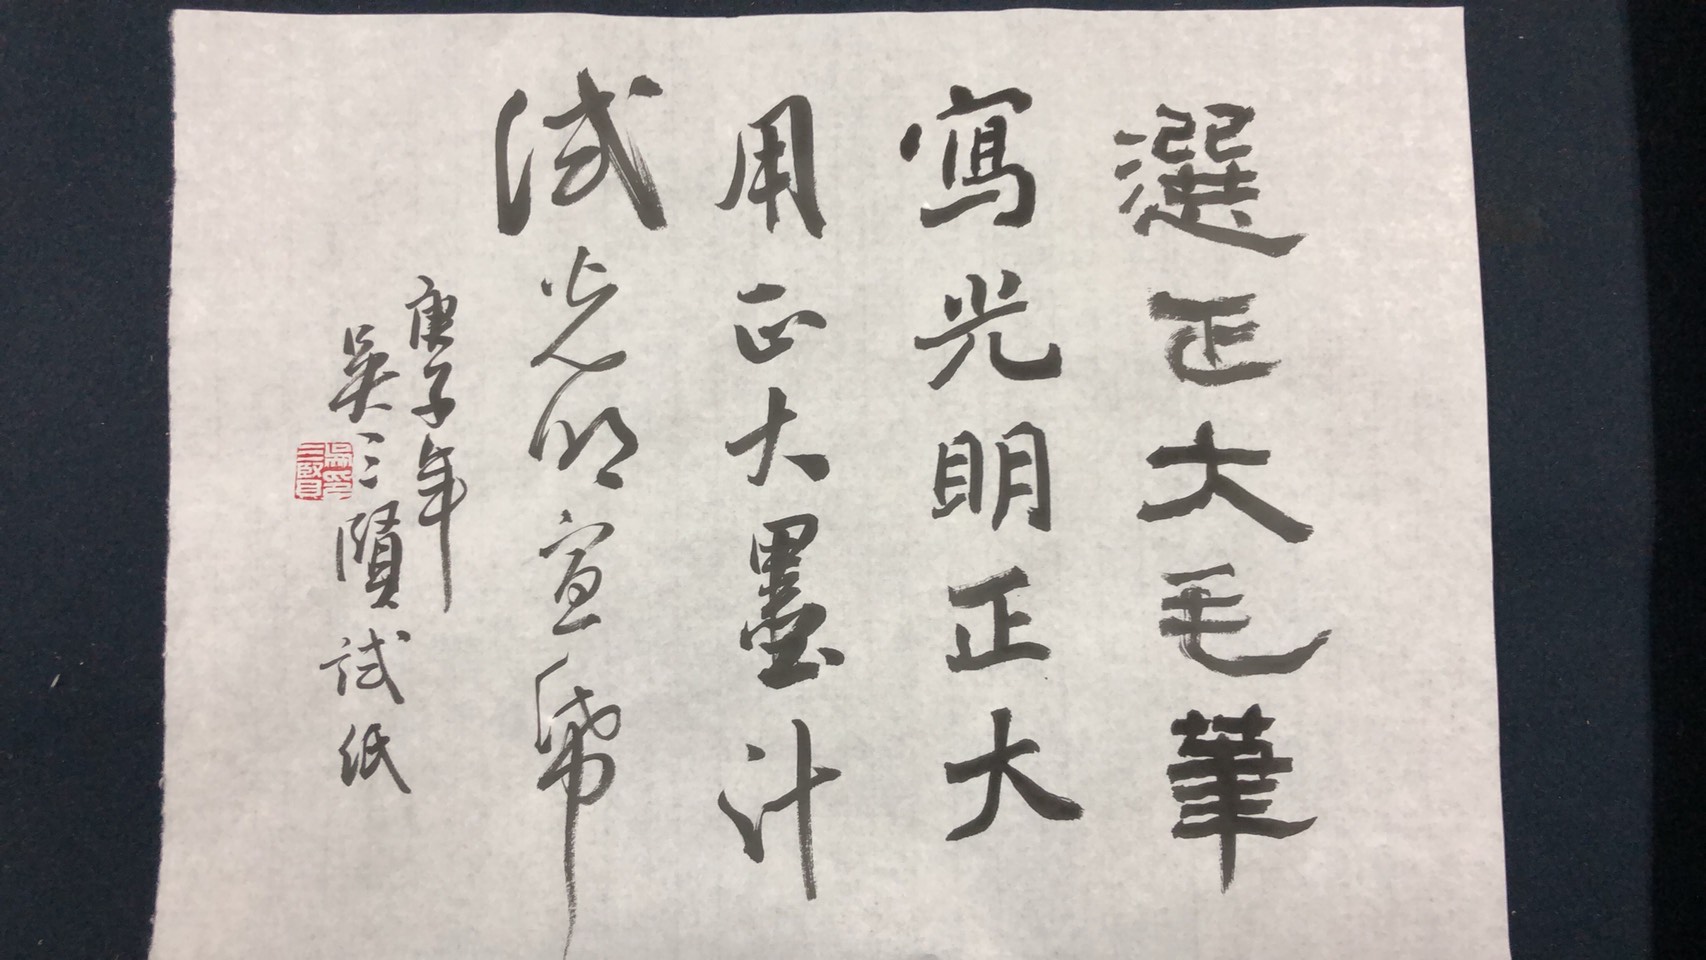 選正大毛筆
寫光明正大
用正大墨汁
試光明宣帋
庚子年
吳三賢試紙
吳印三賢